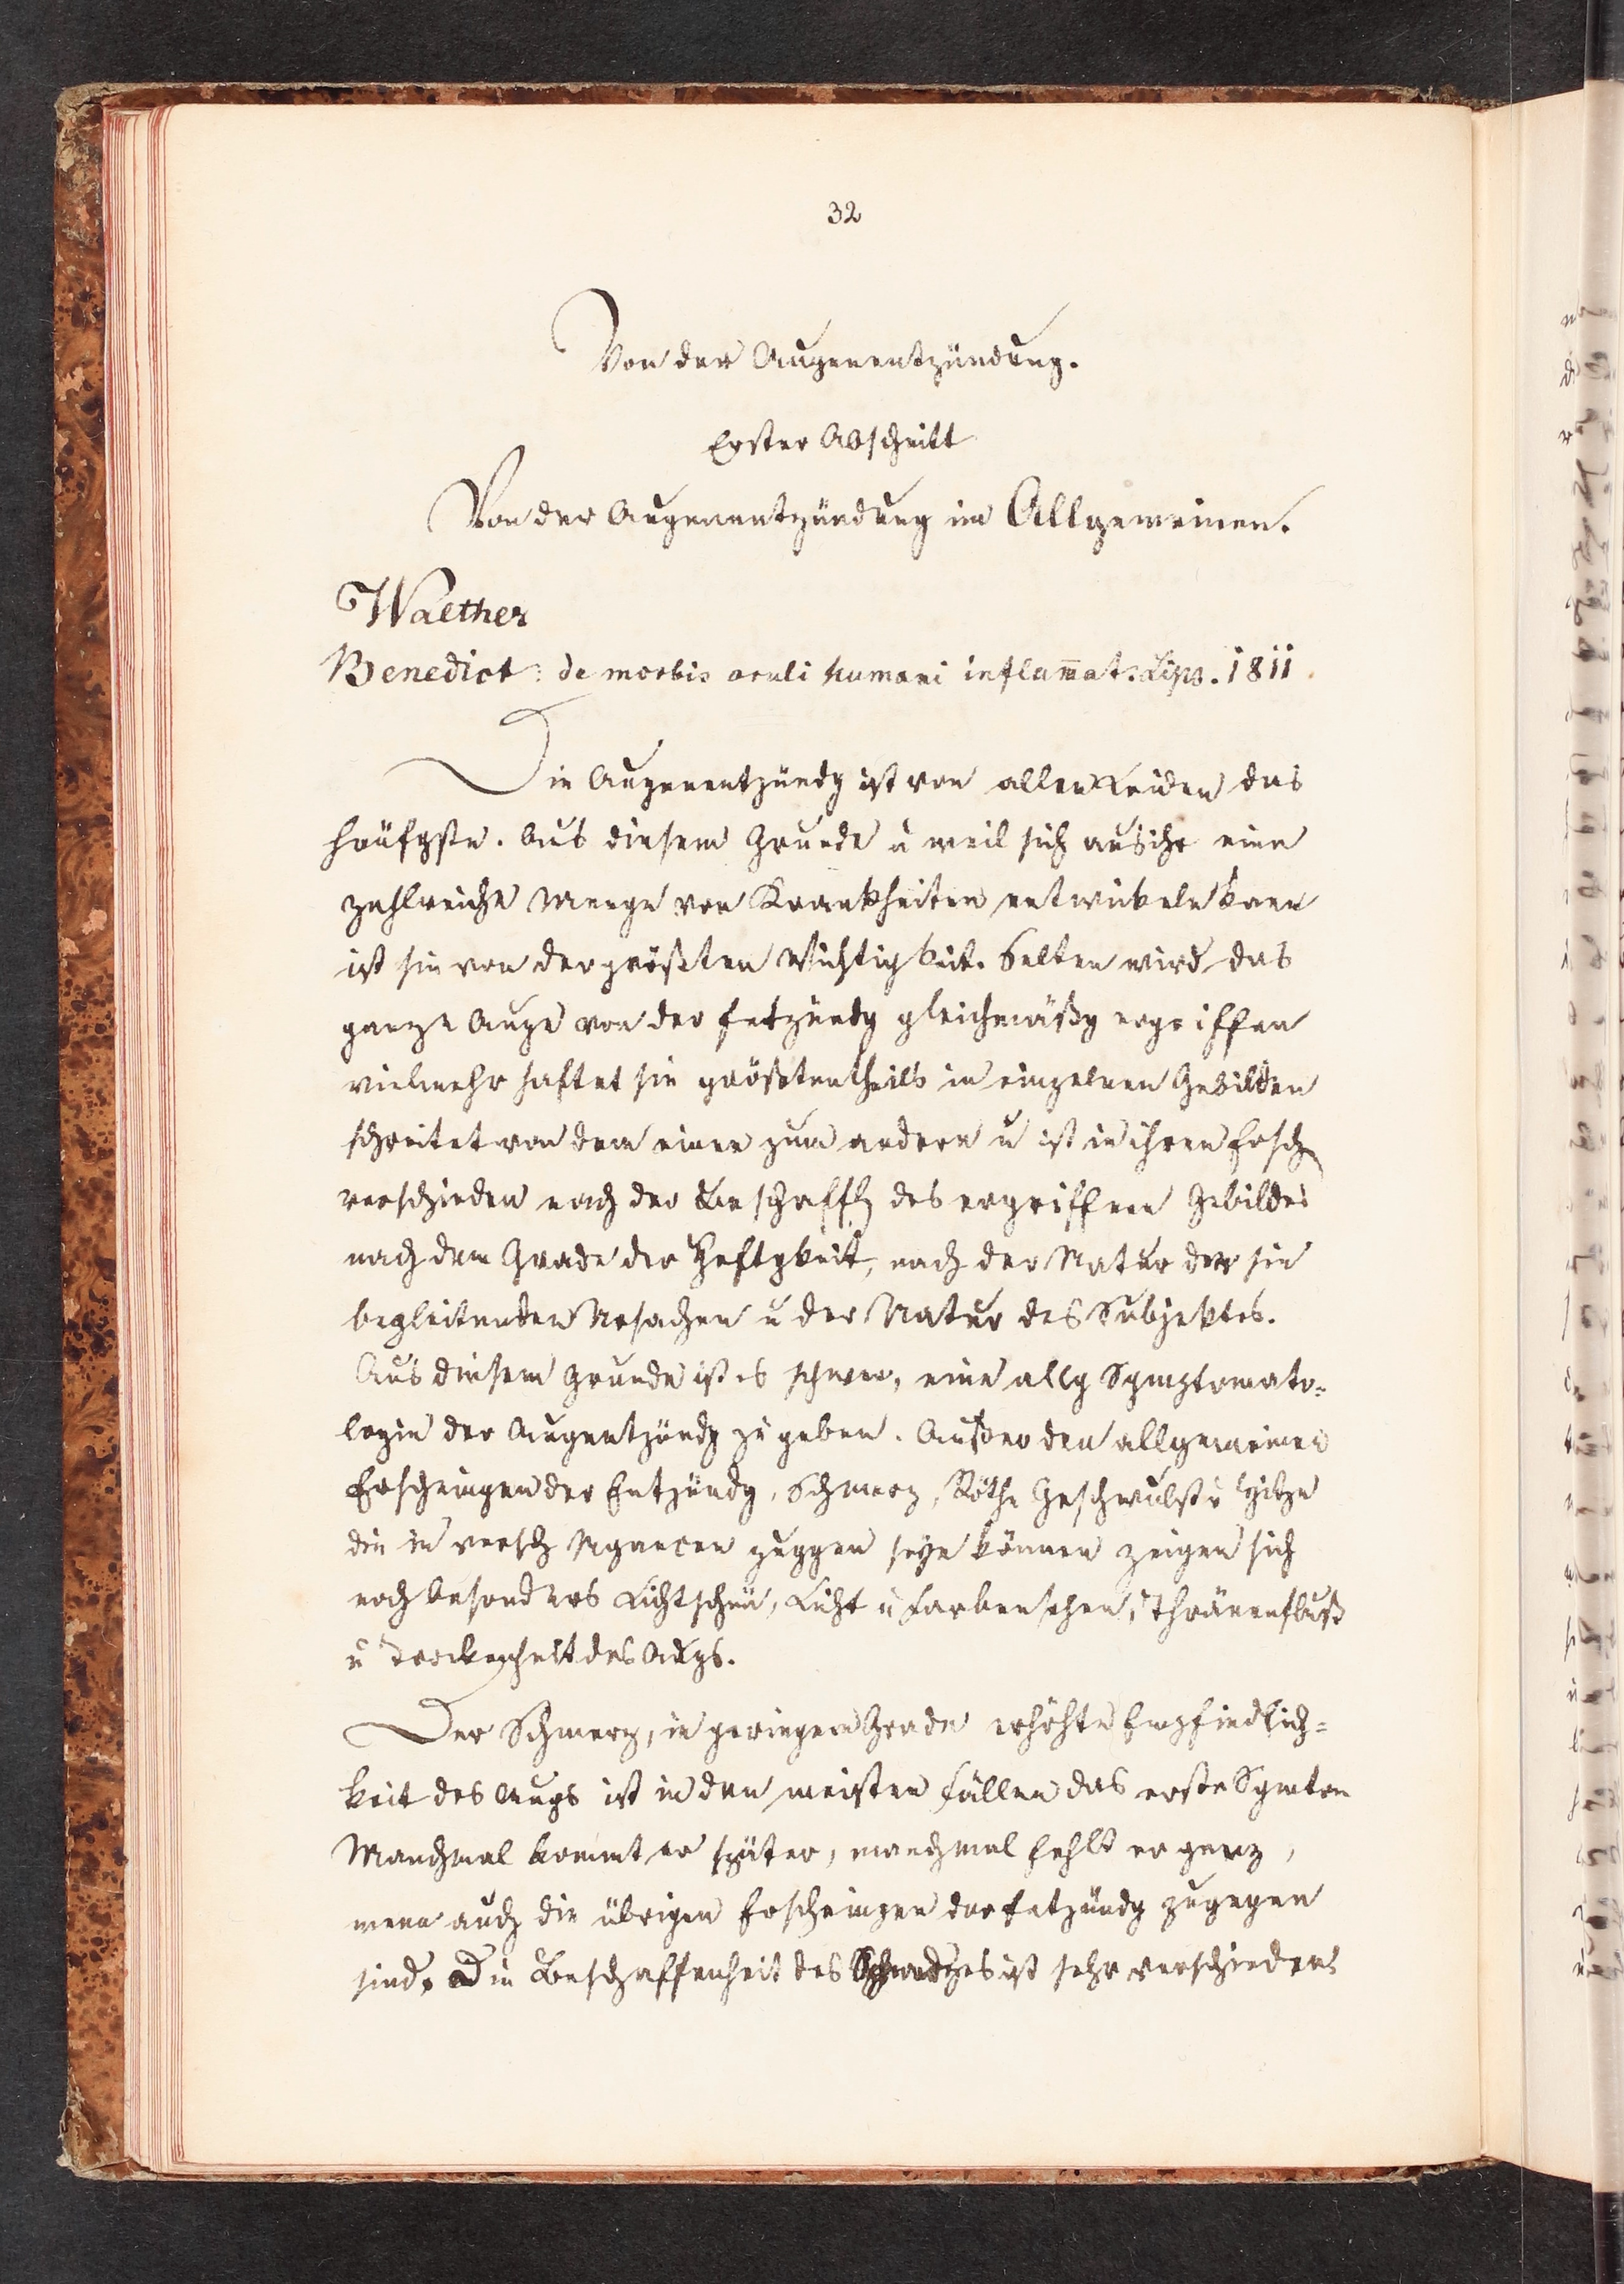 32
Von der Augenentzündung.
Erster Abschnitt
Von der Augenentzündung im Allgemeinen.
Walther
Benedict: de morbis oculi humani inflam̅at: Lips. 1811.
Die Augenentzündg ist von allen Leiden das
häufgste. Aus diesem Grunde u weil sich aus ihr eine
zahlreiche Menge von Krankheiten entwikeln kann
ist sie von der größten Wichtigkeit. Selten wird das
ganze Auge von der Entzündg gleichmäßg ergriffen
vielmehr haftet sie größtentheils in einzelnen Gebilden
schreitet von dem einen zum andern u ist in ihren Ersch
verschieden nach der Beschaffh des ergriffnen Gebildes
nach dem Grade der Heftgkeit, nach der Natur der sie
begleitenden Ursachen u der Natur des Subjektes.
Aus diesem Grunde ist es schwer, eine allg Symptomato=
logie der Augentzündg zu geben. Außer den allgemeinen
Erscheingen der Entzündg, Schmerz, Röthe Geschwulst u Hitze
die in versch Nüancen zuggen seyn können zeigen sich
noch besonders Lichtscheu, Licht u Farbensehen, Thränenfluß
u Trockenheit des Augs.
Der Schmerz, in geringem Grade erhöhte Empfindlich=
keit des Augs ist in den meisten Fällen das erste Symtom
Manchmal kommt er später, manchmal fehlt er ganz,
wenn auch die übrigen Erscheingen der Entzündg zugegen
sind. Die Beschaffenheit des Schmerzes ist sehr verschieden